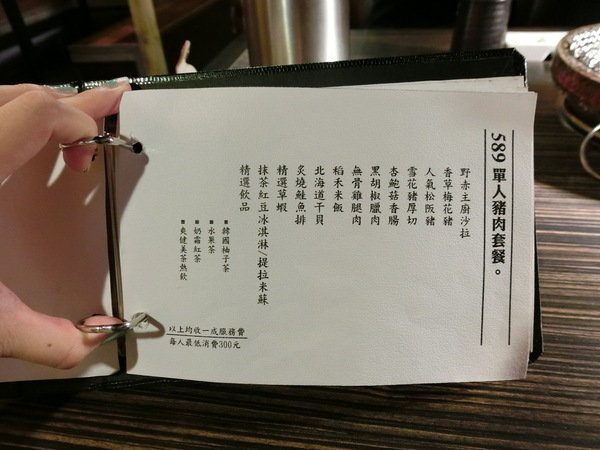 589 單人豬肉套餐。
野赤主廚沙拉
香草梅花豬
人氣松阪豬
雪花豬厚切
杏鮑菇香腸
黑胡椒臘肉
無骨雞腿肉
稻禾米飯
北海道干貝
炙燒鮭魚排
精選草蝦
抹茶紅豆冰淇淋/提拉米蘇
精選飲品
▪韓國柚子茶
▪水果茶
▪奶霜紅茶
▪爽健美茶熱飲
以上均收一成服務費
每人最低消費300元